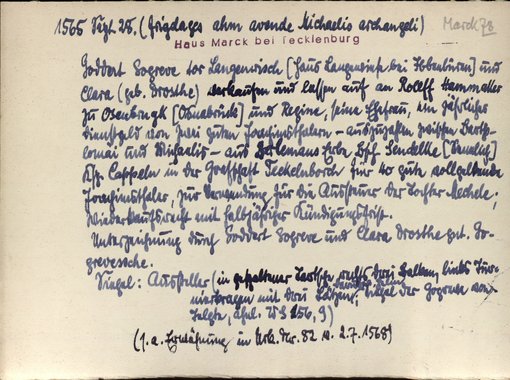 1565 Sept. 28. (frigdages ahm avende Michaelis archangeli)
Marck 78
Haus Marck bei Tecklenburg
Goddert Gogreve tor Langenwisch [Haus Langewiese bei Ibbenbüren] und
Clara (geb. Drosthe) verkaufen und lassen auf an Roleff Hammaker
zu Osenbrugk [Osnabrück] und Regine, seine Ehefrau, ein jährliches
Dienstgeld von zwei guten Joachimsthalern - auszuzahlen zwischen Barth-
lomai und Michaelis - aus Erbe, Bsch. Sendelke
Ksp. Cappeln in der Grafschaft Teckelnborch für 40 gute vollgeltende
Joachimsthaler, zur Verwendung für die Aussteuer der Tochter Mechele;
Wiederkaufsrecht mit halbjähriger Kündigungsfrist.
Unterzeichnung durch Goddert Gogreve und Clara Drosthe gt. Go-
grevesche.
Siegel: Aussteller (in gespaltener Tartsche rechts drei Balken, links
mit drei Siegel der Gogreve von
)
(s. a. Erwähnung in Urk. Nr. 82 v. 2.7.1568)